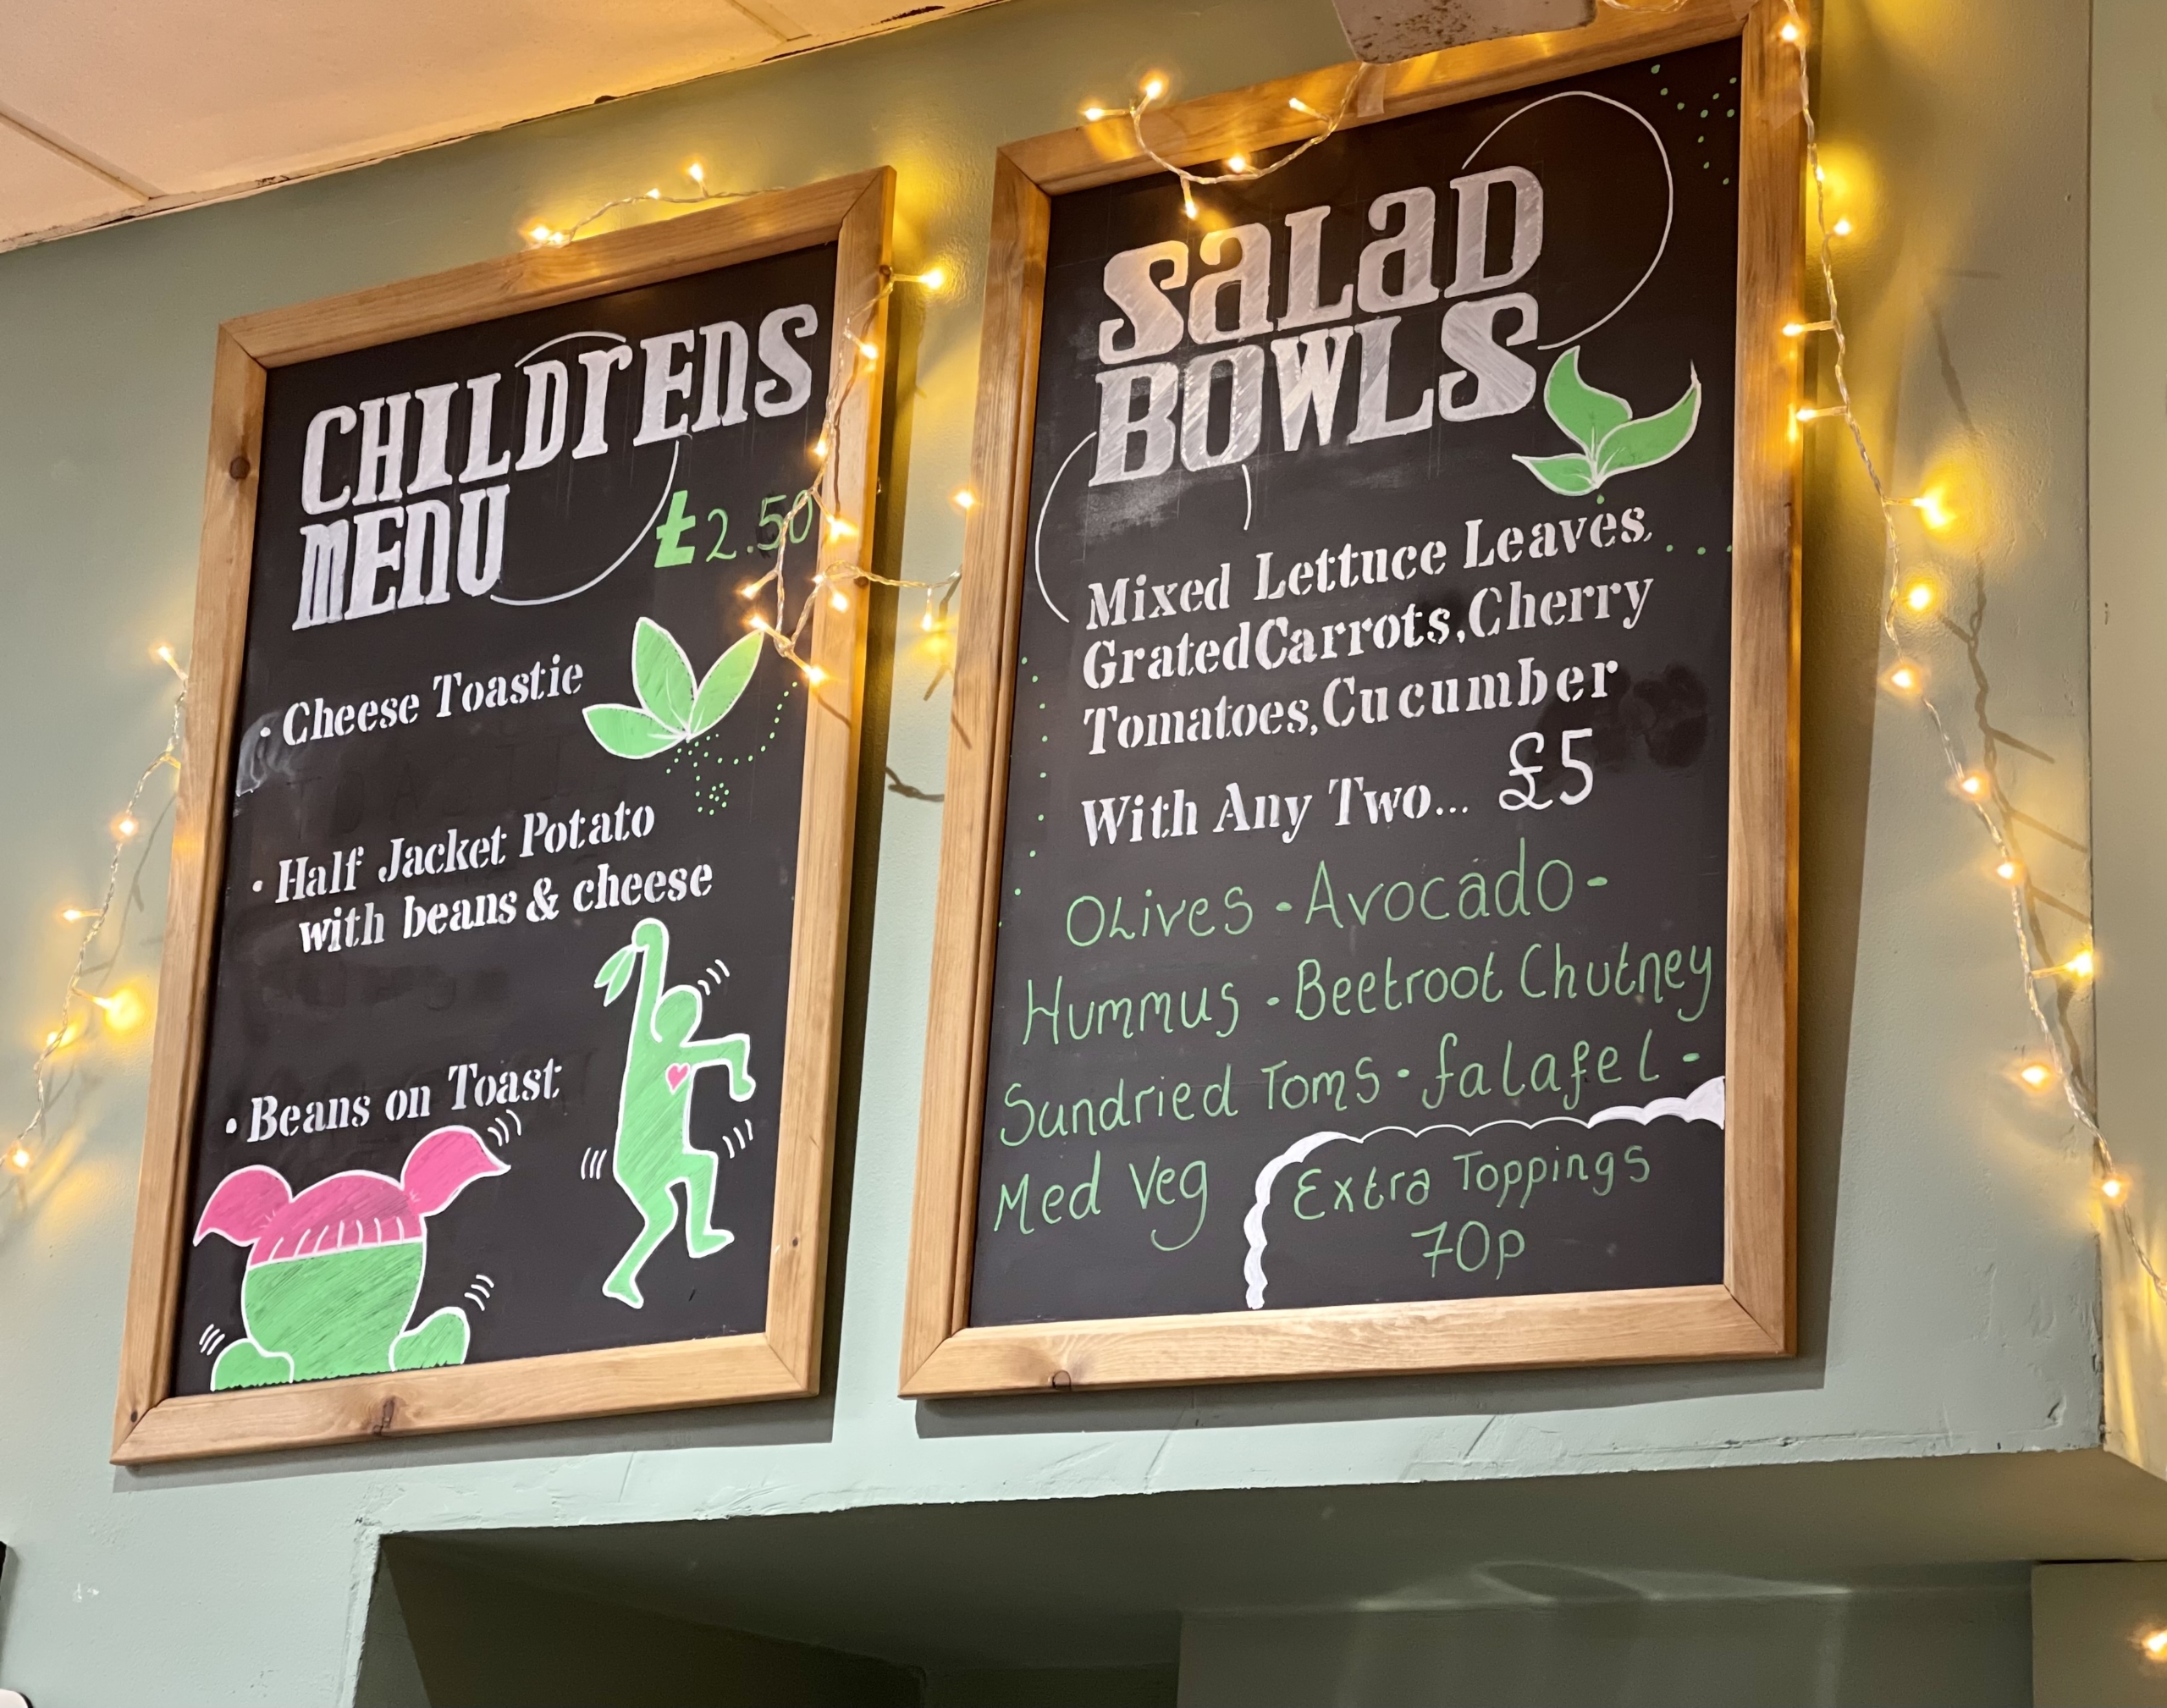 CHILDrENS
MENU
£2.50
· Cheese Toastie
· Half Jacket Potato
with beans & cheese
· Beans on Toast
SaLaD
BOWLS
Mixed Lettuce Leaves,
Grated Carrots, Cherry
Tomatoes, Cucumber
With Any Two... £5
OLives - Avocado -
Hummus - Beetroot Chutney
Sundried Toms - falafel -
Med Veg
Extra Toppings
70p